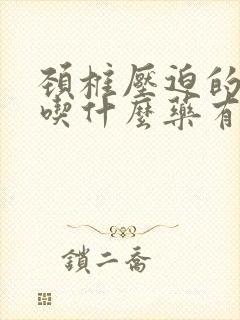 頸椎壓迫的
喫什麼藥有
鎖二喬